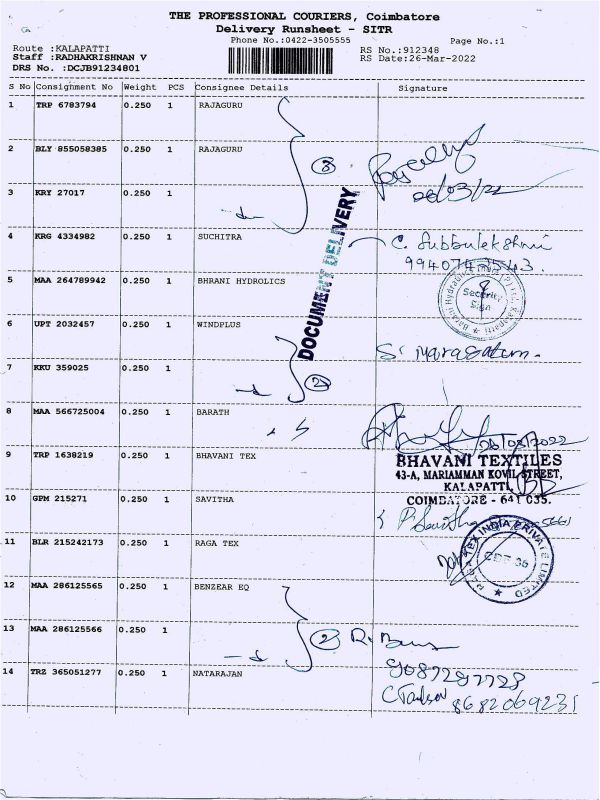 THE PROFESSIONAL COURIERS, Coimbatore
Delivery Runsheet - SITR
Phone No.:0422-3505555
Page No.:1
Route :KALAPATTI
RS No.:912348
Staff :RADHAKRISHNAN V
RS Date:26-Mar-2022
DRS No. :DCJB91234801
S No Consignment No Weight PCS Consignee Details Signature
1 TRP 6783794 0.250 1 RAJAGURU
2 BLY 855058385 0.250 1 RAJAGURU
3
3 KRY 27017 0.250 1
4 KRG 4334982 0.250 1 SUCHITRA C. Subbulekshmi
DOCUMENT DELIVERY
5 MAA 264789942 0.250 1 BHRANI HYDROLICS
Security
Sign
6 UPT 2032457 0.250 1 WINDPLUS
7 KKU 359025 0.250 1
2
8 MAA 566725004 0.250 1 BARATH
26/03/2022
9 TRP 1638219 0.250 1 BHAVANI TEX
BHAVANI TEXTILES
43-A, MARIAMMAN KOVIL STREET,
KALAPATTI,
COIMBATORE - 641 035.
10 GPM 215271 0.250 1 SAVITHA P. Savitha
11 BLR 215242173 0.250 1 RAGA TEX
RAGA TEX INDIA PRIVATE LIMITED
12 MAA 286125565 0.250 1 BENZEAR EQ
13 MAA 286125566 0.250 1
2
9087287728
14 TRZ 365051277 0.250 1 NATARAJAN
8682069231